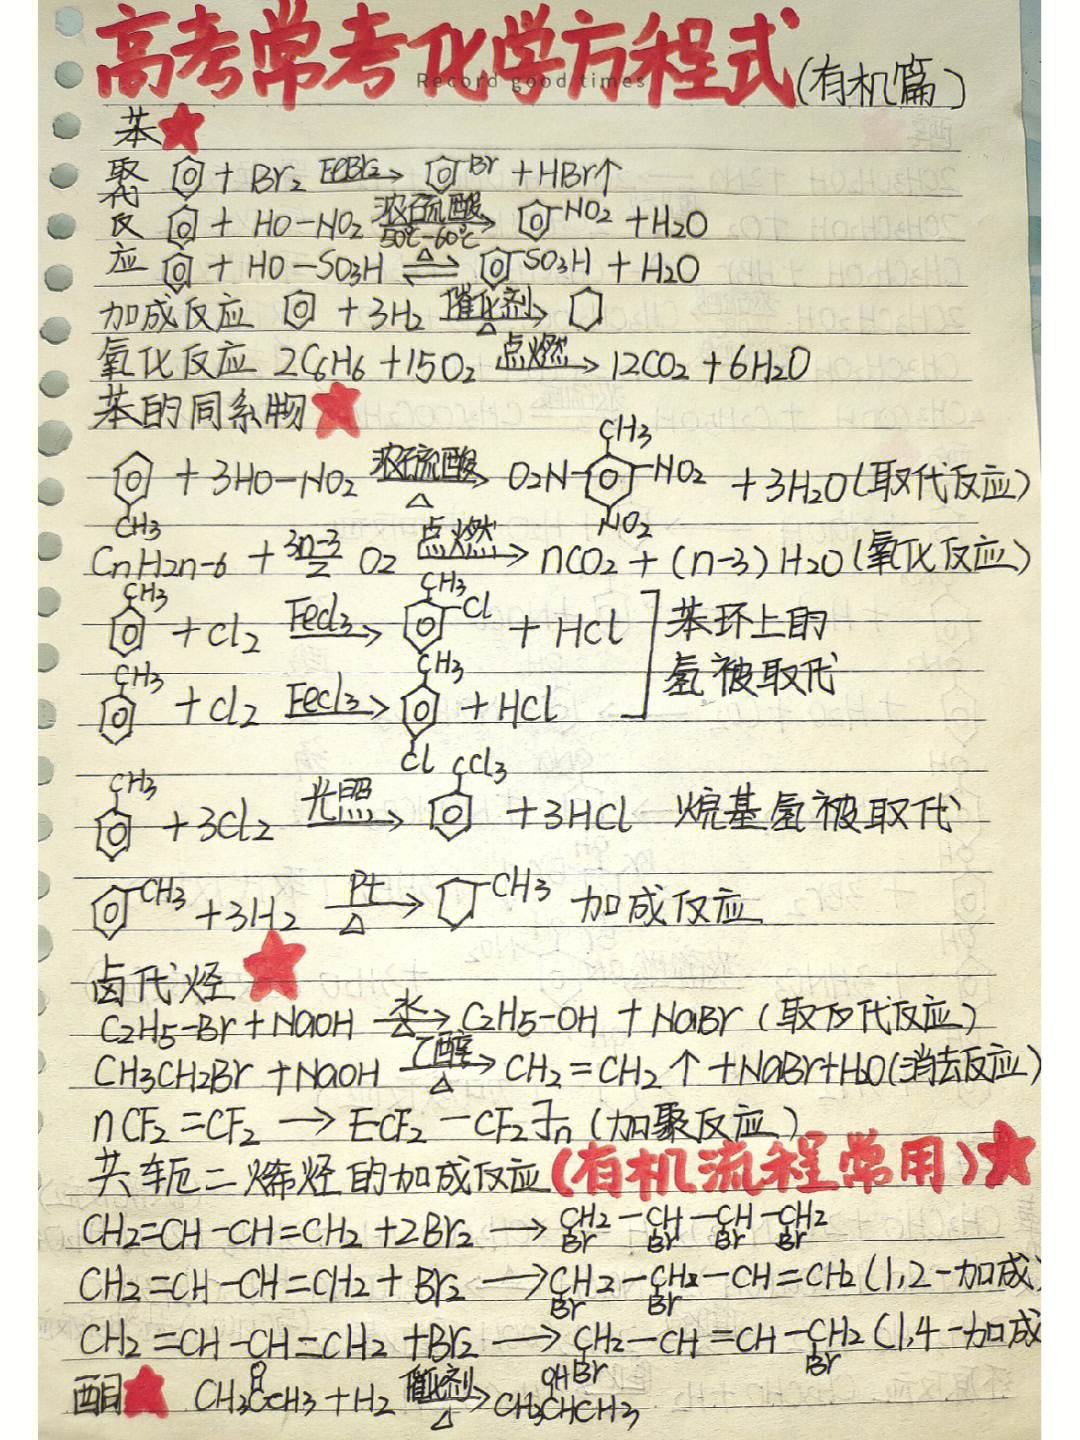 高考常考化学方程式(有机篇)
Record good times
苯
取代 ⌬ + Br2 FeBr2→ ⌬-Br + HBr↑
反 ⌬ + HO-NO2 浓硫酸 50℃-60℃→ ⌬-NO2 + H2O
应 ⌬ + HO-SO3H △⇌ ⌬-SO3H + H2O
加成反应 ⌬ + 3H2 催化剂 △→ ⬡
氧化反应 2C6H6 + 15O2 点燃→ 12CO2 + 6H2O
苯的同系物
⌬-CH3 + 3HO-NO2 浓硫酸 △→ O2N-⌬(CH3)(NO2)-NO2 + 3H2O(取代反应)
CnH2n-6 + 3n-3/2 O2 点燃→ nCO2 + (n-3)H2O(氧化反应)
⌬-CH3 + Cl2 FeCl3→ ⌬(CH3)-Cl + HCl 苯环上的
氢被取代
⌬-CH3 + Cl2 FeCl3→ ⌬(CH3)-Cl + HCl
⌬-CH3 + 3Cl2 光照→ ⌬-CCl3 + 3HCl 烷基氢被取代
⌬-CH3 + 3H2 Pt △→ ⬡-CH3 加成反应
卤代烃
C2H5-Br + NaOH 水 △→ C2H5-OH + NaBr (取反代反应)
CH3CH2Br + NaOH 乙醇 △→ CH2=CH2↑ + NaBr+H2O(消去反应)
nCF2=CF2 → [CF2-CF2]n (加聚反应)
共轭二烯烃的加成反应(有机流程常用)
CH2=CH-CH=CH2 + 2Br2 → CH2Br-CHBr-CHBr-CH2Br
CH2=CH-CH=CH2 + Br2 → CH2Br-CH2Br-CH=CH2 (1,2-加成)
CH2=CH-CH=CH2 + Br2 → CH2Br-CH=CH-CH2Br (1,4-加成
酮 CH3C(O)CH3 + H2 催化剂 △→ CH3CH(OH)CH3